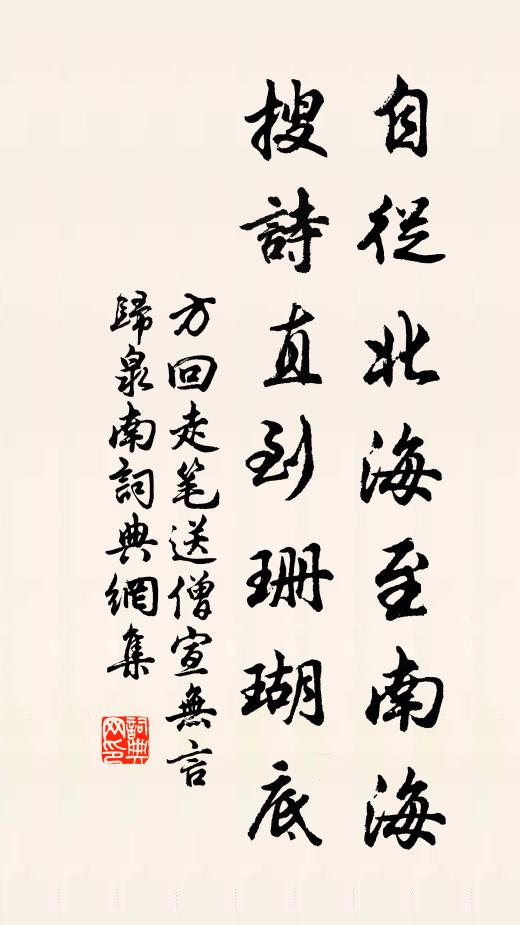 自從北海至南海
搜詩直到珊瑚底
方回走笔送僧宣無言
歸泉南詞典網集
詞典网印